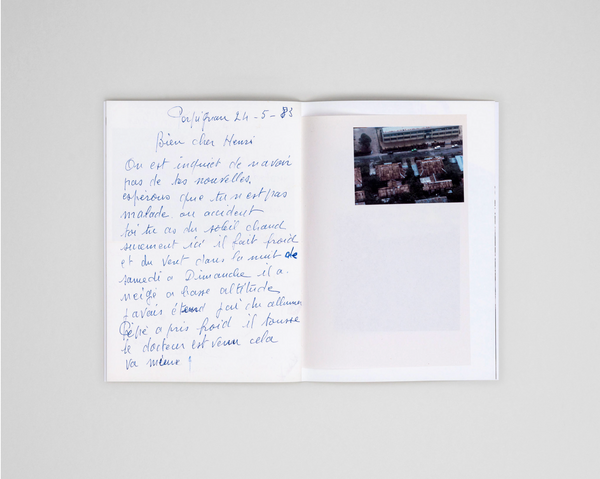 Perpignan 24-5-83
Bien cher Henri
On est inquiet de n avoir
pas de tes nouvelles,
espérons que tu n est pas
malade ou accident
toi tu as du soleil chaud
surement ici il fait froid
et du vent dans la nuit de
samedi a Dimanche il a
neigé a basse altitude
j avais éteind j ai du allumer
Pépé a pris froid il tousse
le docteur est venu cela
va mieux